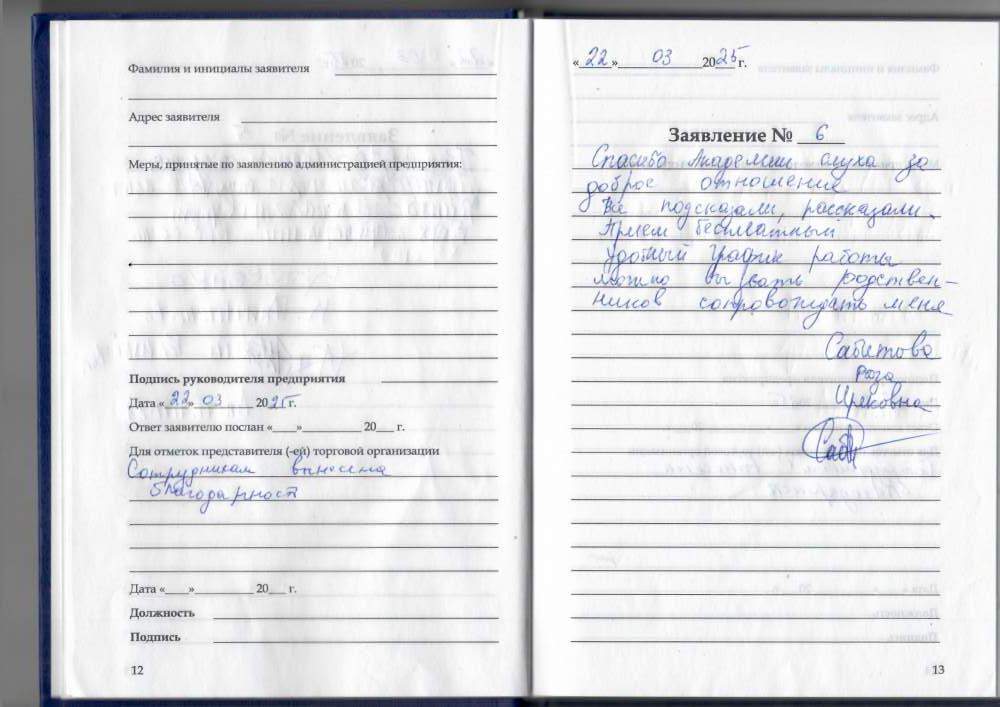 Фамилия и инициалы заявителя
Адрес заявителя
Меры, принятые по заявлению администрацией предприятия:
Подпись руководителя предприятия
Дата «22» 03 2025 г.
Ответ заявителю послан «___» ________ 20__ г.
Для отметок представителя (-ей) торговой организации
Сотрудникам вынесена
благодарност
Дата «___» ________ 20__ г.
Должность
Подпись
12
«22» 03 2025 г.
Заявление № 6
Спасибо Академии слуха за
доброе отношение
Все подсказали, рассказали.
Прием бесплатный
Удобный график работы
можно вызвать родствен-
ников сопровождать меня
Сабитова
Роза
Ирековна
Саб
13